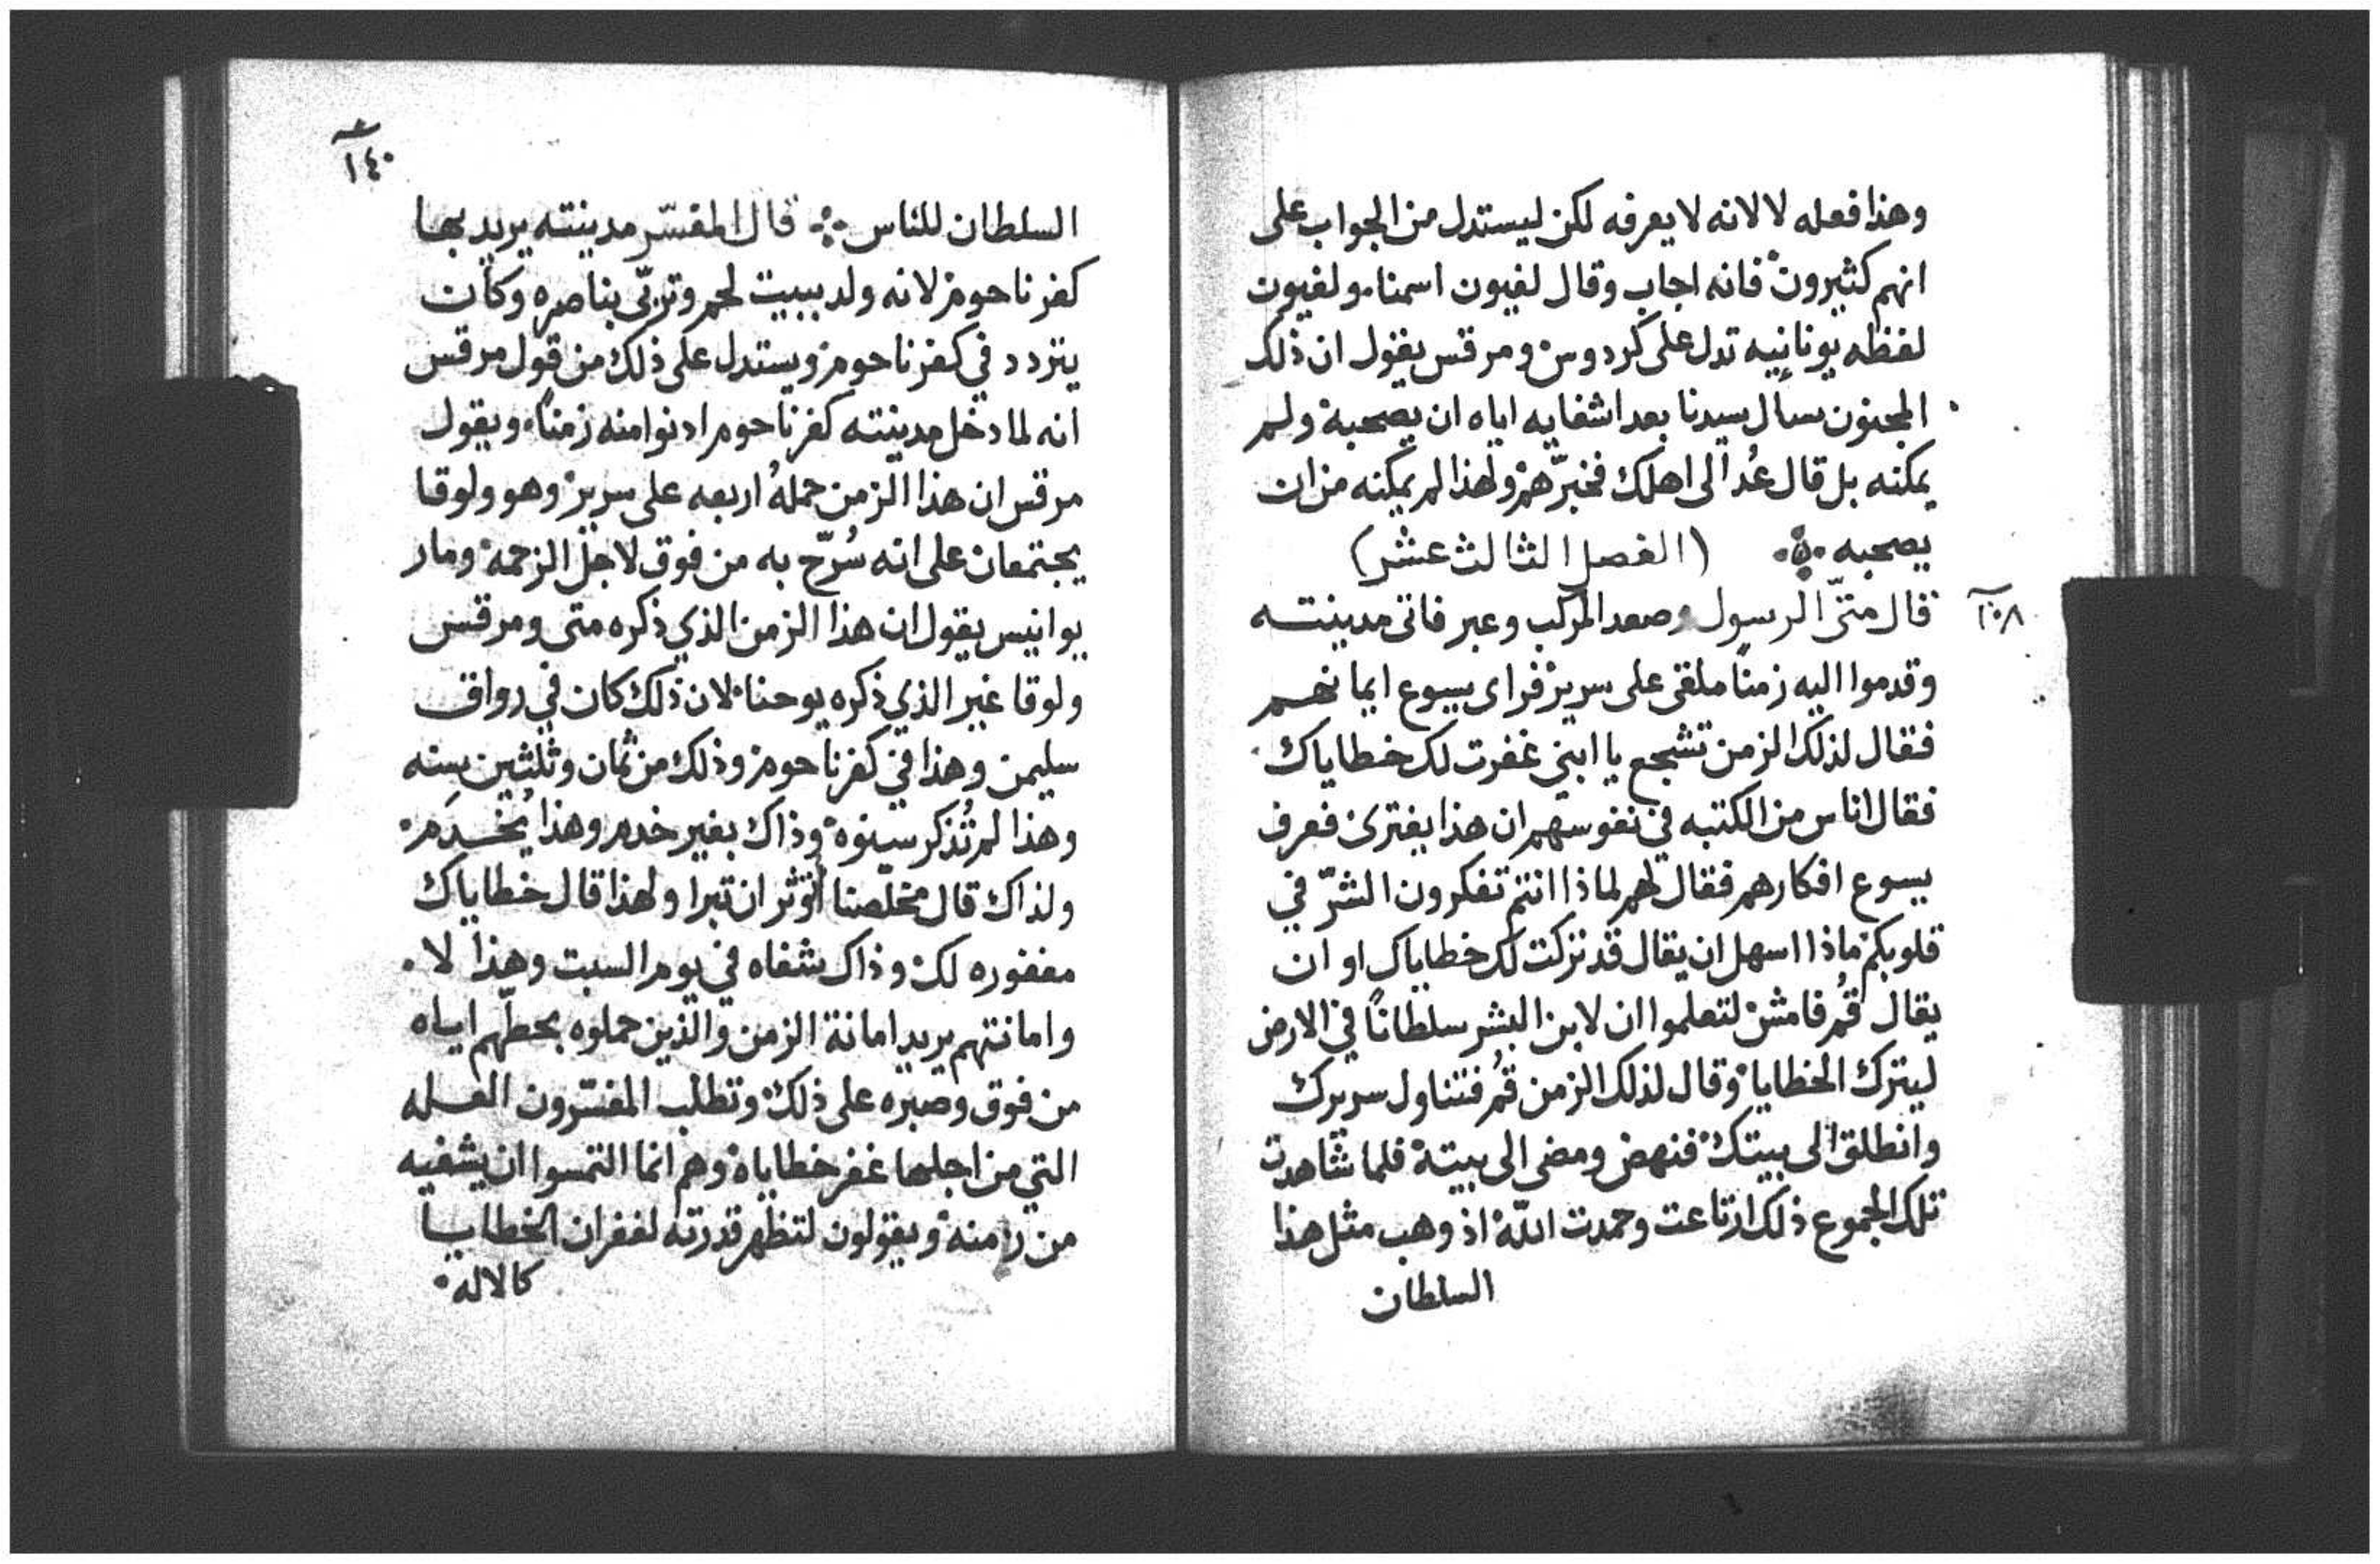 وهذا فعله لا لانه لا يعرفه لكن ليستدل من الجواب على
انهم كثيرون فانه اجاب وقال لغيون اسمنا. ولغيون
لفظه يونانيه تدل على كردوس ومرقس يقول ان ذلك
المجنون سال سيدنا بعد اشفايه اياه ان يصحبه ولم
يمكنه بل قال عُد الى اهلك فخبّرهم ولهذا لم يمكنه من ان
يصحبه ⁘ (الفصل الثالث عشر)
قال متّى الرسول وصعد المركب وعبر فاتى مدينته
١٠٨
وقدموا اليه زمنًا ملقى على سرير فراى يسوع ايمانهم
فقال لذلك الزمن تشجع يا ابني غفرت لك خطاياك.
فقال اناس من الكتبه في نفوسهم ان هذا يفترى فعرف
يسوع افكارهم فقال لهم لماذا انتم تفكرون الشرّ في
قلوبكم ماذا اسهل ان يقال قد تركت لك خطاياك او ان
يقال قُم فامش لتعلموا ان لابن البشر سلطانًا في الارض
ليترك الخطايا وقال لذلك الزمن قُم فتناول سريرك
وانطلق الى بيتك فنهض ومضى الى بيته فلما شاهدت
تلك الجموع ذلك ارتاعت وحمدت اللّه اذ وهب مثل هذا
السلطان
١٤٠
السلطان للناس ⁘ قال المفسّر مدينته يريد بها
كفرناحوم لانه ولد ببيت لحم وتربّى بناصره وكان
يتردد في كفرناحوم ويستدل على ذلك من قول مرقس
انه لما دخل مدينته كفرناحوم ادنوا منه زمنًا. ويقول
مرقس ان هذا الزمن حملهُ اربعه على سرير وهو ولوقا
يجتمعان على انه سُرّح به من فوق لاجل الزحمه ومار
يوانيس يقول ان هذا الزمن الذي ذكره متى ومرقس
ولوقا غير الذي ذكره يوحنا لان ذلك كان في رواق
سليمن وهذا في كفرناحوم وذلك من ثمان وثلثين سنه
وهذا لم تُذكر سنوه وذاك بغير خدم وهذا يُخدَم
ولذاك قال مخلّصنا أتوثر ان تبرا ولهذا قال خطاياك
مغفوره لك وذاك شفاه في يوم السبت وهذا لا.
وامانتهم يريد امانة الزمن والذين حملوه بحطّهم اياه
من فوق وصبره على ذلك وتطلب المفسّرون العله
التي من اجلها غفر خطاياه وهم انما التمسوا ان يشفيه
من زمنه ويقولون لتظهر قدرته لغفران الخطايا
كالاله